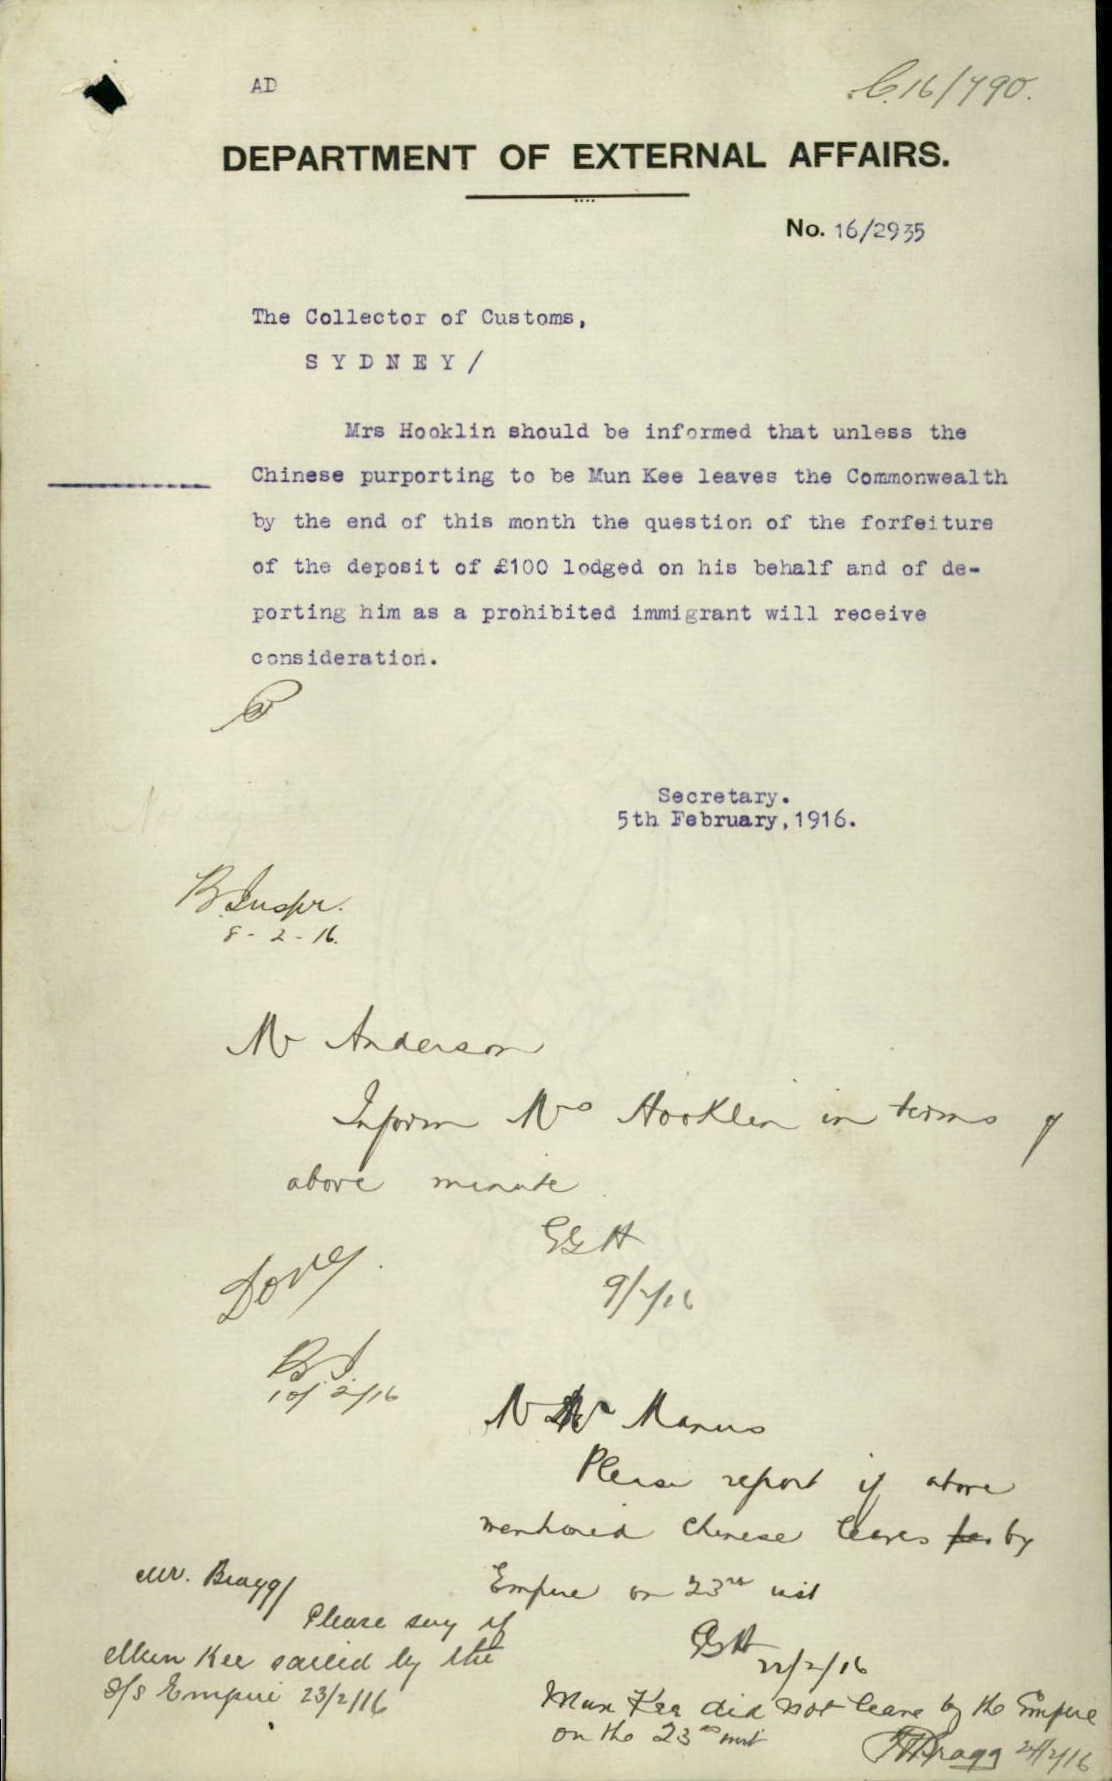 AD
C.16/790.
DEPARTMENT OF EXTERNAL AFFAIRS.
No. 16/2935
The Collector of Customs,
S Y D N E Y /
Mrs Hooklin should be informed that unless the
Chinese purporting to be Mun Kee leaves the Commonwealth
by the end of this month the question of the forfeiture
of the deposit of £100 lodged on his behalf and of de-
porting him as a prohibited immigrant will receive
consideration.
Secretary.
5th February,1916.
B. Inspr.
8-2-16.
Mr Anderson
Inform Mrs Hooklin in terms of
above minute
GGH
9/2/16
B.I.
10/2/16
Mr Manus
Please report if above
mentioned Chinese leaves by
Empire on 23rd inst
GGH
22/2/16
Mr. Bragg/
Please say if
Mun Kee sailed by the
S/S Empire 23/2/16
Mun Kee did not leave by the Empire
on the 23rd inst
Bragg 24/2/16